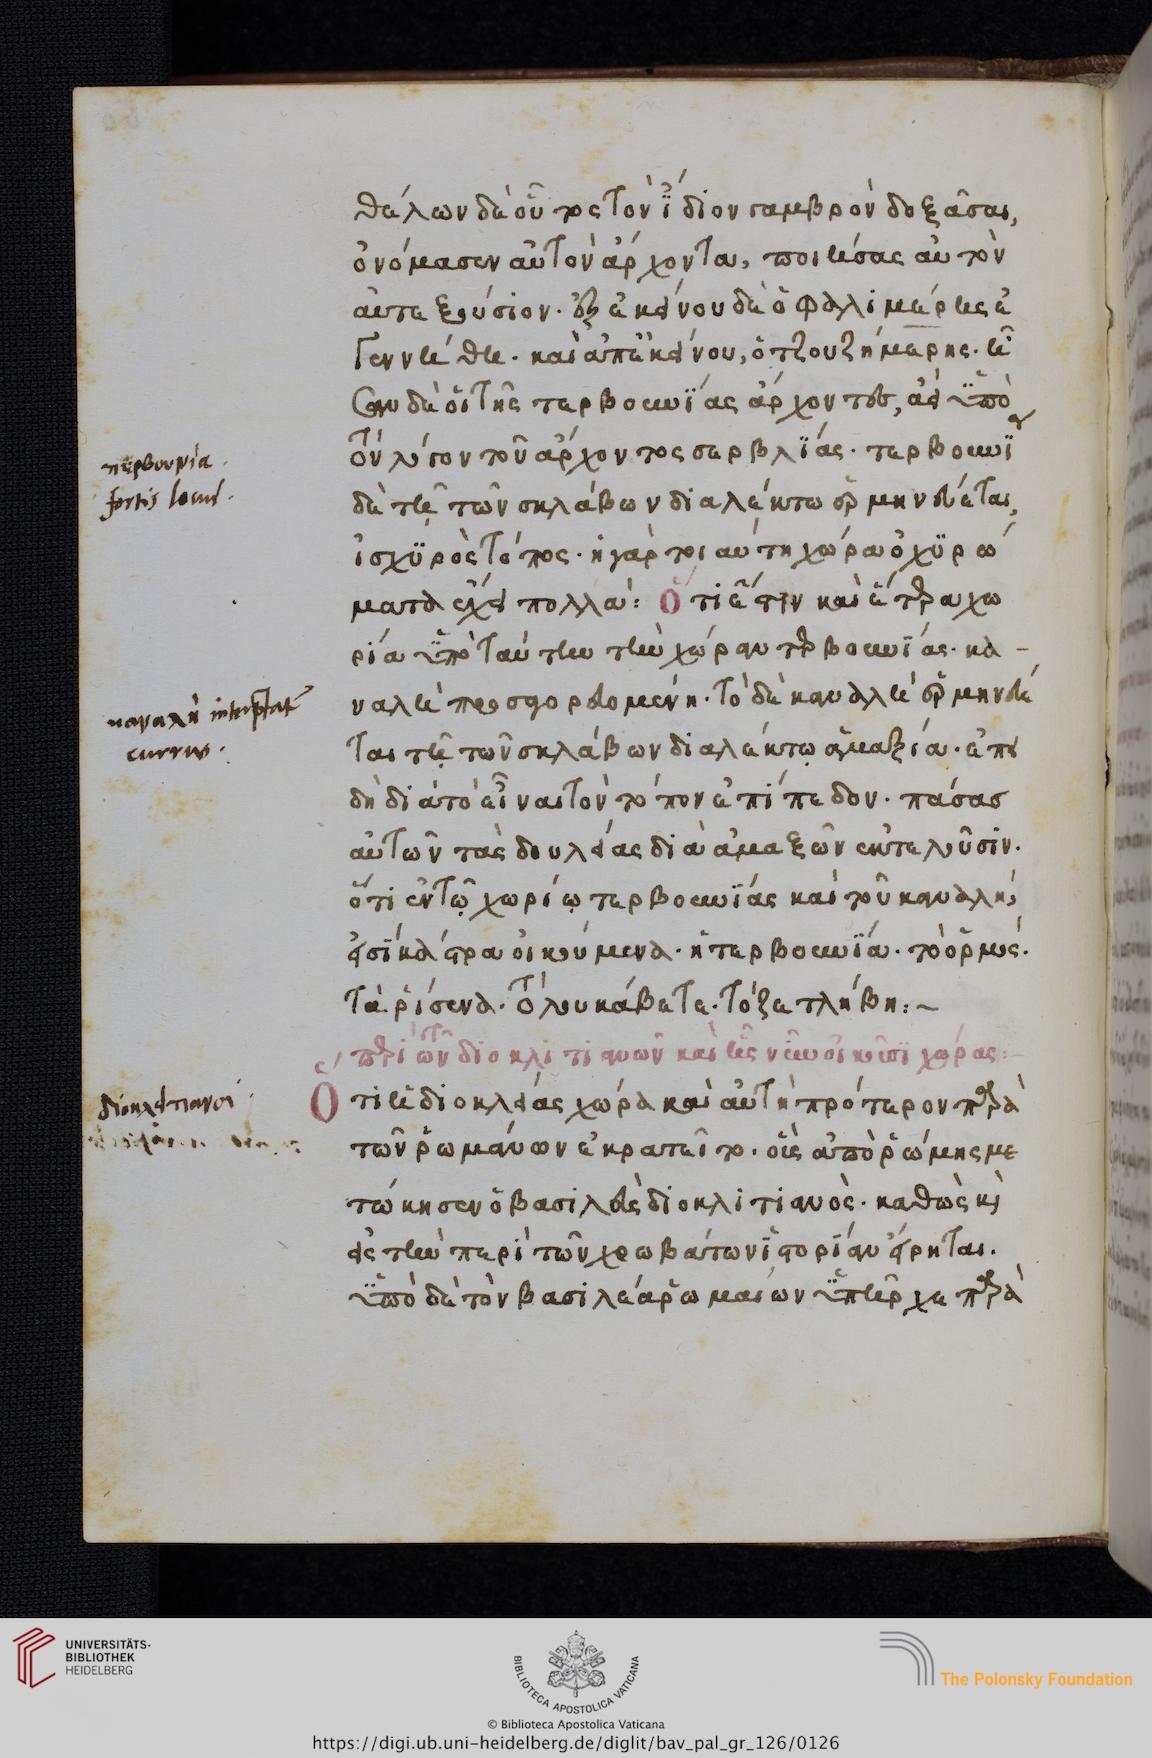 θέλων δὲ οὗτος τὸν ἴδιον γαμβρὸν δοξᾶσαι,
ὀνόμασεν αὐτὸν ἄρχοντα, ποιήσας αὐτὸν
αὐτεξούσιον. ἐξ ἐκείνου δὲ ὁ φαλιμέρης ἐ
γεννήθη. καὶ ἀπ' ἐκείνου, ὁ τζουζήμερης. ἦ
σαν δὲ οἱ τῆς τερβουνίας ἄρχοντες, ἀεὶ ὑπὸ
τὸν λόγον τοῦ ἄρχοντος σερβλίας. τερβουνία
δὲ τῇ τῶν σκλάβων διαλέκτω ἑρμηνεύεται,
ἰσχυρὸς τόπος. ἡ γάρ τοι αὕτη χώρα ὀχυρώ
ματα ἔχει πολλά: Ὅτι ἔστιν καὶ ἑτέρα χω
ρία ὑπὸ ταύτην τὴν χώραν τερβουνίας. κα-
ναλὴ προσαγορευομένη. τὸ δὲ καναλὴ ἑρμηνεύε
ται τῇ τῶν σκλάβων διαλέκτῳ ἁμαξία. ἐπει
δὴ διὰ τὸ εἶναι τὸν τόπον ἐπίπεδον. πάσας
αὐτῶν τὰς δουλείας διὰ ἁμαξῶν ἐκτελοῦσιν.
ὅτι ἐν τῷ χωρίῳ τερβουνίας καὶ τοῦ καναλη,
εἰσὶ κάστρα οἰκούμενα. ἡ τερβουνία. τὸ ὁρμός.
τὰ ῥίσενα. τὸ λουκάβετε. τὸ ζετλήβη:~
περὶ τῶν διοκλιτιανῶν καὶ ἧς νῦν οἰκοῦσι χώρας:
Ὅτι ἡ διοκλείας χώρα καὶ αὐτὴ πρότερον παρὰ
τῶν ῥωμάνων ἐκρατεῖτο. οὓς ἀπὸ ῥώμης με
τώκησεν ὁ βασιλεὺς διοκλιτιανὸς. καθὼς καὶ
εἰς τὴν περὶ τῶν χρωβάτων ἱστορίαν εἴρηται.
ὑπὸ δὲ τὸν βασιλέα ῥωμαίων ὑπῆρχε παρὰ
τερβουνία.
fortis locus.
καναλὴ interpretatur
currus.
διοκλητιανοί
UNIVERSITÄTS-
BIBLIOTHEK
HEIDELBERG
BIBLIOTECA APOSTOLICA VATICANA
The Polonsky Foundation
© Biblioteca Apostolica Vaticana
https://digi.ub.uni-heidelberg.de/diglit/bav_pal_gr_126/0126